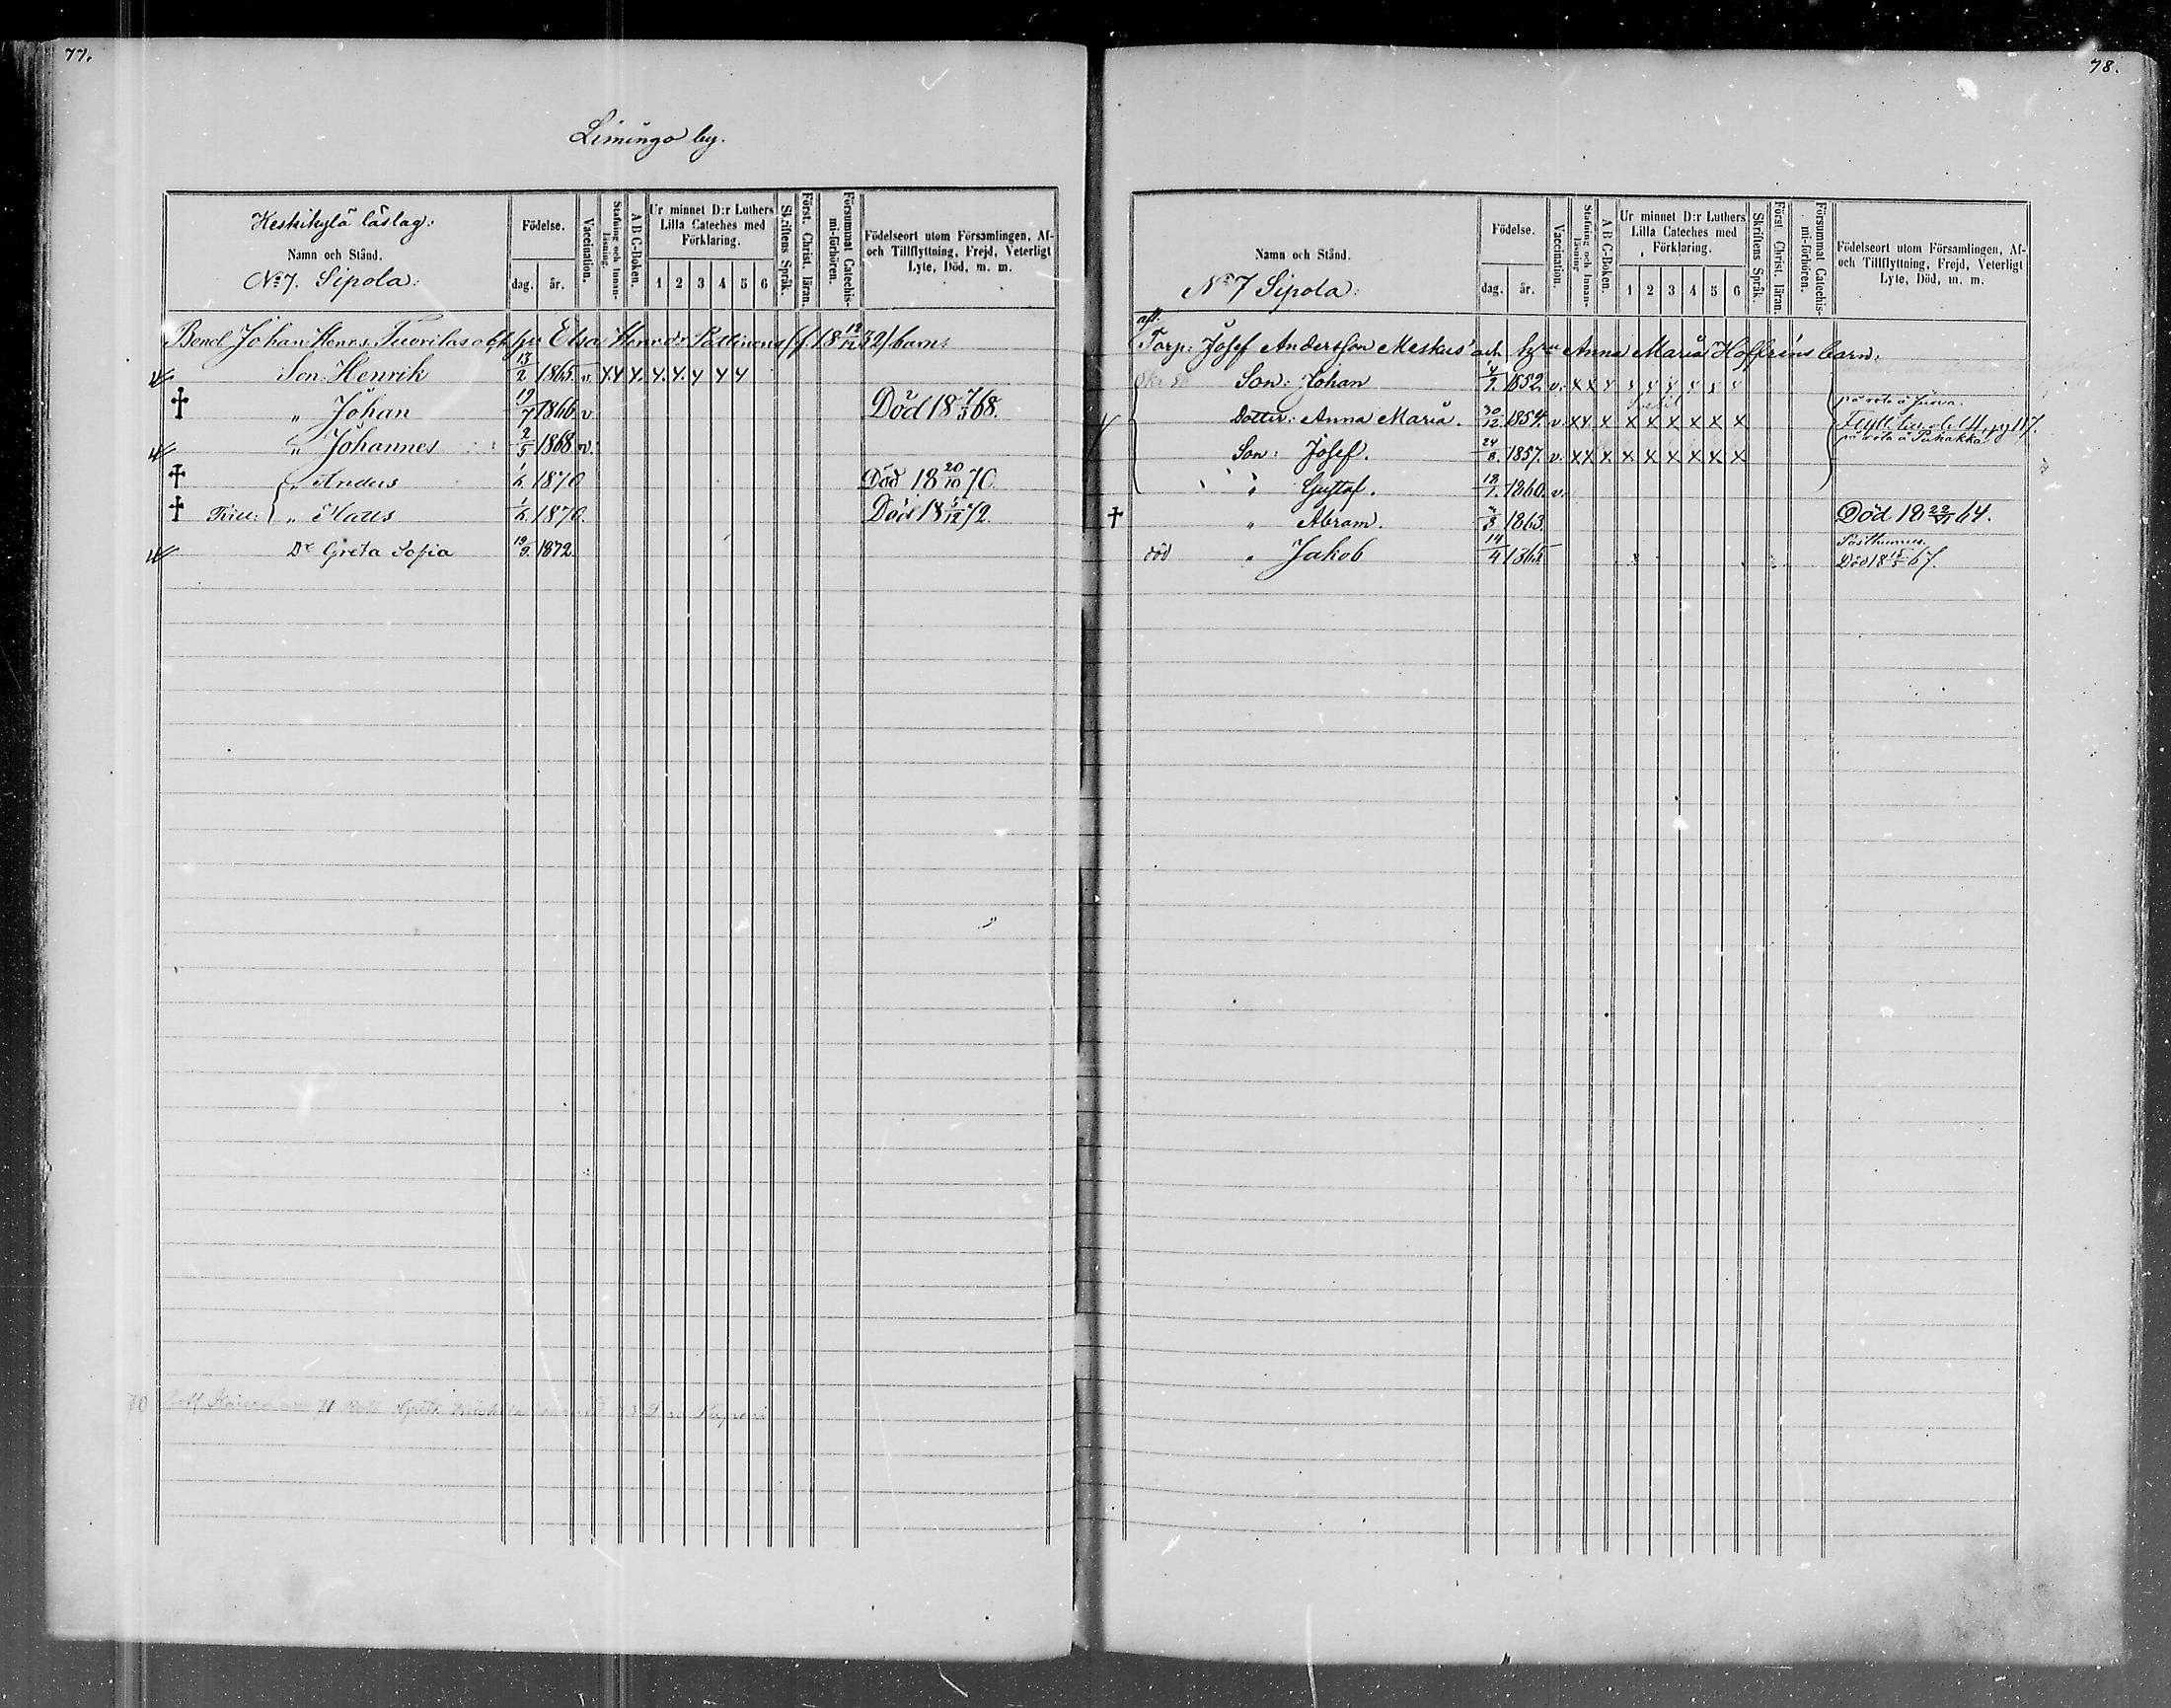 77.
Limingo by.
Keskikylä läslag:
Namn och Stånd.
No 7. Sipola:
Födelse.
dag. år.
Vaccination.
Stafning och Innanläsning.
A B C-Boken.
Ur minnet D:r Luthers Lilla Cateches med Förklaring.
1 2 3 4 5 6
Skriftens Språk.
Först. Christ. läran.
Försummat Catechismi-förhören.
Födelseort utom Församlingen, Af- och Tillflyttning, Frejd, Veterligt Lyte, Död, m. m.
Bond Johan Henrs. Tuorilas o hu Elsa Henrdr (f 18 12 32) barn:
Son Henrik 13/2 1865. v. x x x. x. x. x x x
† " Johan 19/7 1866. v. Död 18 7/5 68.
" Johannes 2/5 1868 v.
† " Anders 1/6. 1870 Död 18 20/10 70.
† Trill: " Matts 1/6. 1870. Död 18 5/12 72.
Dr Greta Sofia 19/9. 1872.
78.
Namn och Stånd.
No 7 Sipola:
Födelse.
dag. år.
Vaccination.
Stafning och Innanläsning
A B C-Boken.
Ur minnet D:r Luthers Lilla Cateches med Förklaring.
1 2 3 4 5 6
Skriftens Språk.
Först. Christ. läran.
Försummat Catechismi-förhören.
Födelseort utom Församlingen, Af- och Tillflyttning, Frejd, Veterligt Lyte, Död, m. m.
afl.
Torp: Josef Andersson Meskus' och h:u Anna Maria Hoffréns barn:
Son: Johan 4/1. 1852. v. x x x x x x x x x
på rote å Juova.
Dotter: Anna Maria. 30/12. 1854. v x x x x x x x x x Flytt. till pg 117.
på rote å
Son: Josef. 24/8. 1857. v. x x x x x x x x x
" Gustaf. 18/1. 1860. v.
† " Abram. 3 1863. Död 18 22 64.
Posthumus.
död " Jakob 14/4 1865 Död 18 15/5 67.